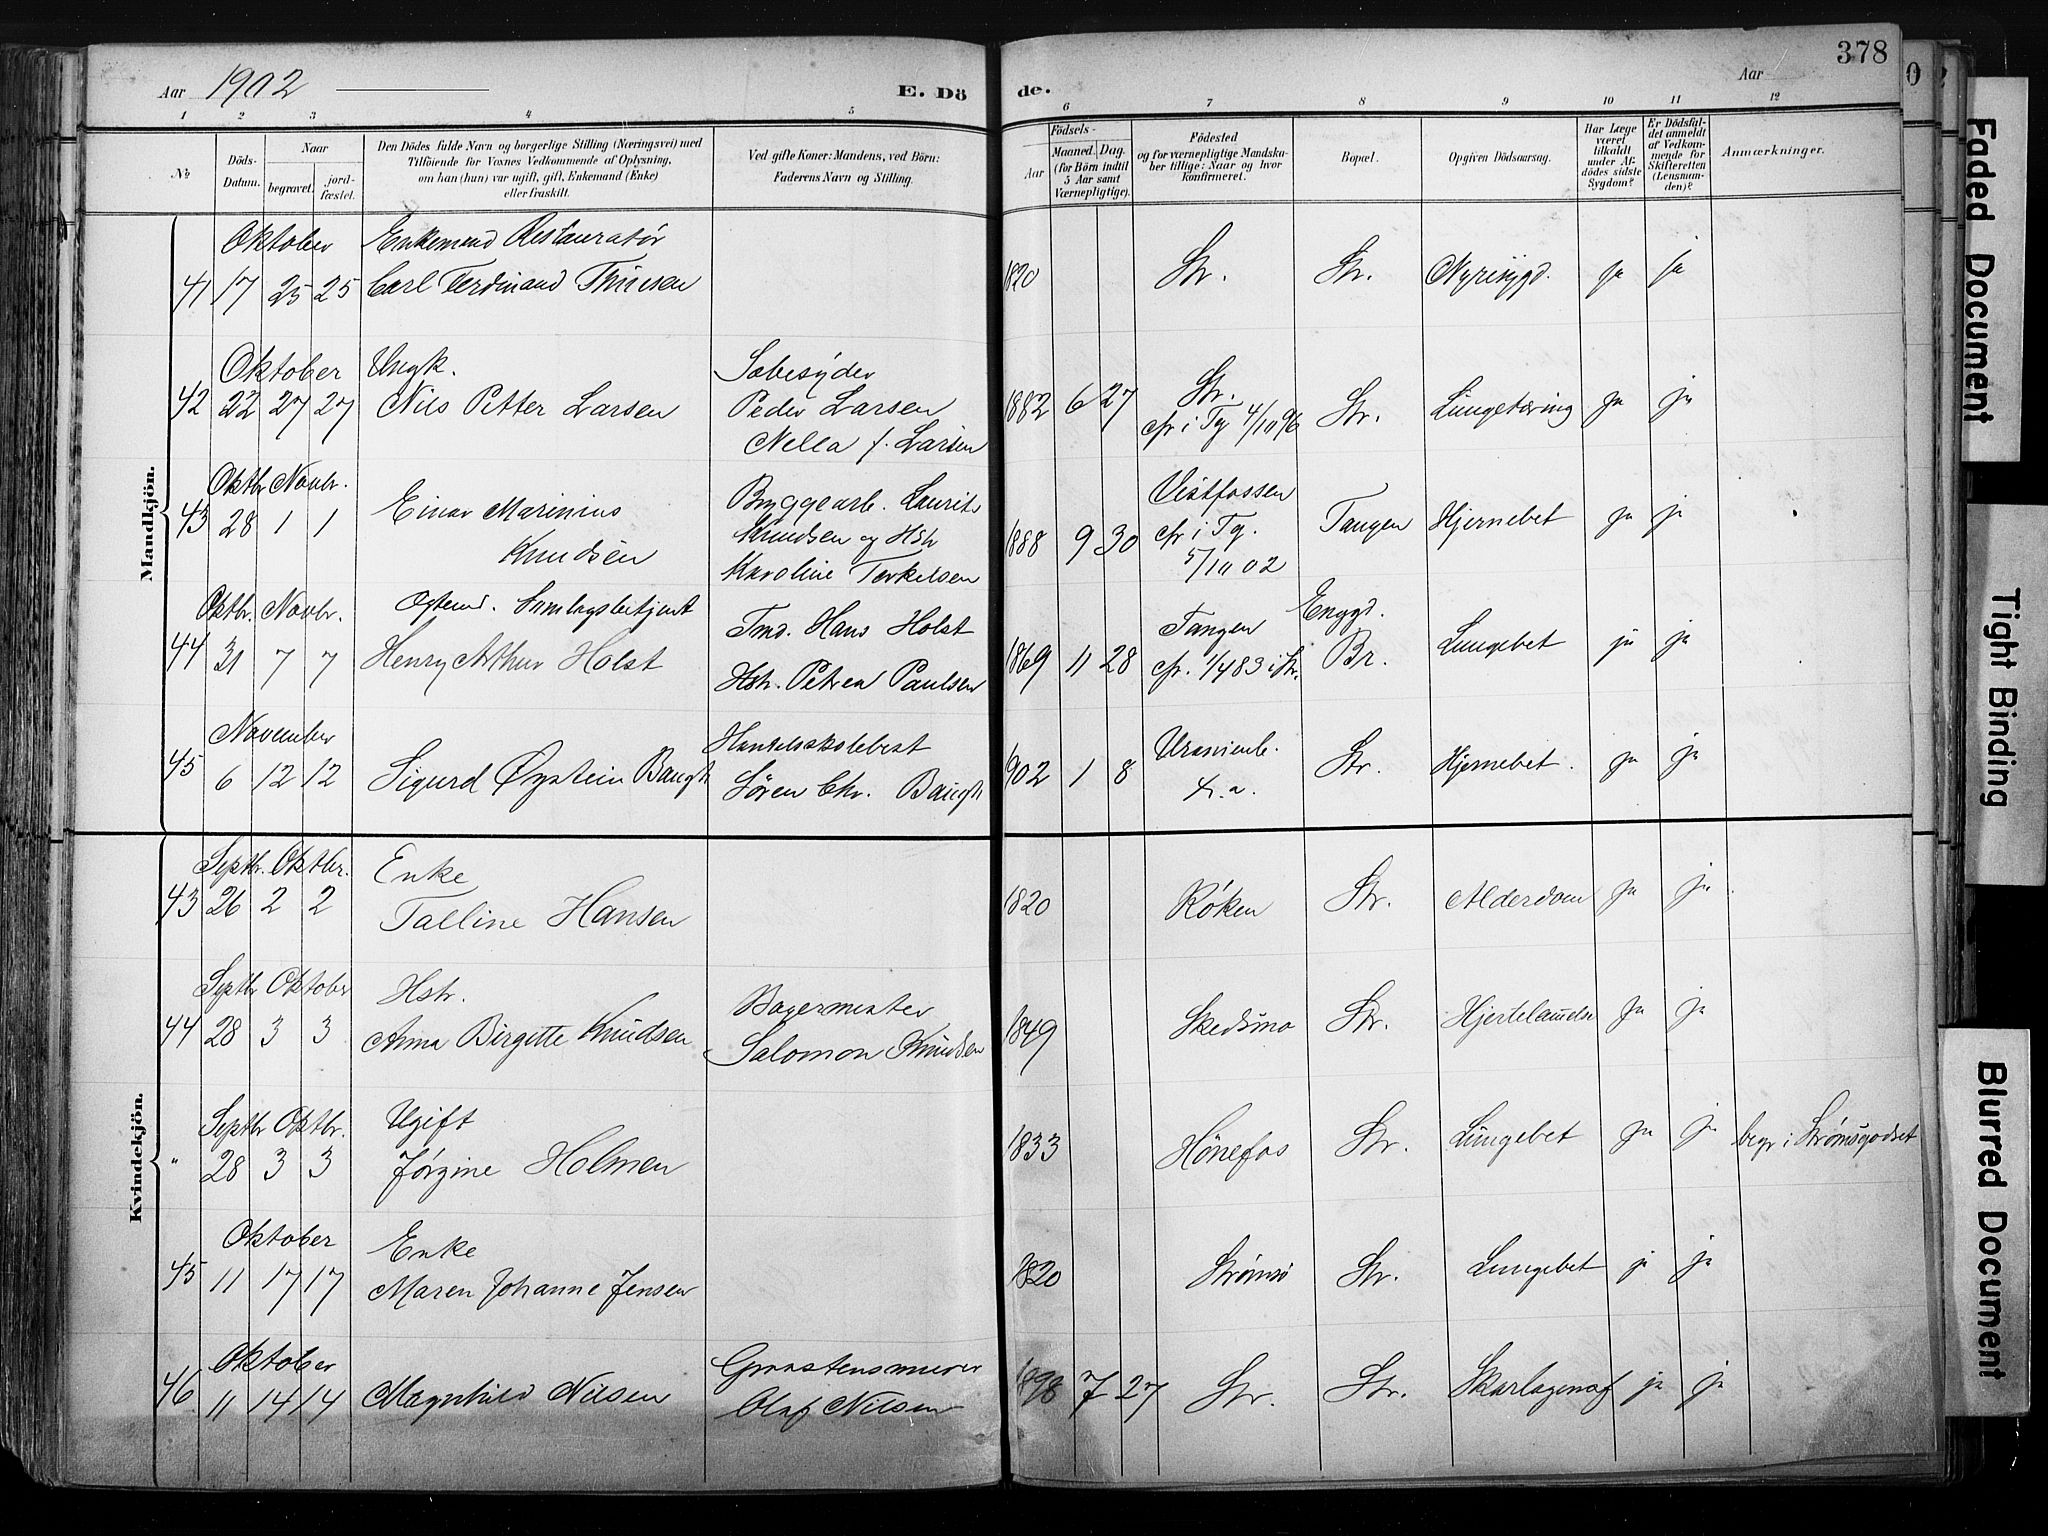 378
Aar 1902 E. Dö
de. Aar
1 2 3 4 5 6 7 8 9 10 11 12
№
Döds-Datum.
Naar
begravet.
jord-fæstet.
Den Dödes fulde Navn og borgerlige Stilling (Næringsvei) med
Tilföiende for Voxnes Vedkommende af Oplysning,
om han (hun) var ugift, gift, Enkemand (Enke)
eller fraskilt.
Ved gifte Koner: Mandens, ved Börn:
Faderens Navn og Stilling.
Födsels-
Aar
Maaned. Dag.
(for Börn indtil
5 Aar samt
Værnepligtige).
Födested
og for værnepligtige Mandska-
ber tillige: Naar og hvor
konfirmeret.
Bopæl.
Opgiven Dödsaarsag.
Har Læge
været
tilkaldt
under Af-
dödes sidste
Sygdom?
Er Dödsfal-
det anmeldt
af Vedkom-
mende for
Skifteretten
(Lensman-
den)?
Anmærkninger.
Mandkjön.
Oktober Enkemand Restauratør
41 17 25 25 Carl Ferdinand 1820 Str. Str. Nyresygd. ja ja
Oktober Ungk. Sæbesyder
42 22 27 27 Nils Petter Larsen Peder Larsen 1882 6 27 Str. Str. Lungetæring ja ja
Nella f. Larsen cfr i Tg 4/10 96
Oktbr Novbr. Byggearb. Laurits Vestfossen
43 28 1 1 Einar Marinius Knudsen og Hstr 1888 9 30 cfr i Tg. Tangen Hjernebet ja ja
Knudsen Karoline Terkelsen 5/10 02
Oktbr. Novbr. Ogtemd. Samlagsbetjent Tmd. Hans Holst Tangen Enggd.
44 31 7 7 Henry Arthur Holst Hstr. Petrea Paulsen 1869 11 28 cfr. 1/4 83 i Str. Br. Lungebet ja ja
November Handelsskolebest
45 6 12 12 Sigurd Øystein Baugh Søren Chr. Baugh 1902 1 8 Uranienb. Kr.a. Str. Hjernebet. ja ja
Kvindekjön.
Septbr. Oktbr. Enke
43 26 2 2 Talline Hansen 1820 Røken Str. Alderdom ja ja
Septbr Oktober Hstr. Bagermester
44 28 3 3 Anna Birgitte Knudsen Salomon Knudsen 1849 Skedsmo Str. Hjertelamelse ja ja
Septbr Oktbr. Ugift
" 28 3 3 Jørgine Holmen 1833 Hönefos Str. Lungebet ja ja begr i Strømsgodset
Oktober Enke
45 11 17 17 Maren Johanne Jensen 1820 Strømsö Str. Lungebet ja ja
Oktober Graastensmurer
46 11 14 14 Magnhild Nilsen Olaf Nilsen 1898 7 27 Str. Str. Skarlagensf ja ja
Faded Document
Tight Binding
Blurred Document